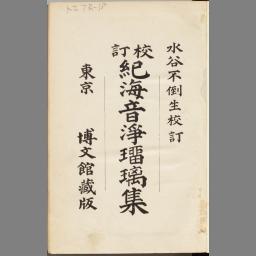 水谷不倒生校訂
校訂紀海音淨瑠璃集
東京 博文館藏版